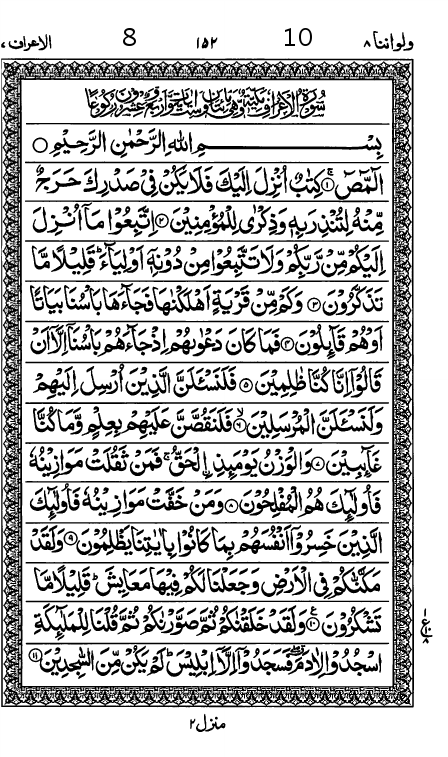 ولواننا ٨ 10 ١٥٢ 8 الاعراف ٧
سُوْرَةُ الْاَعْرَافِ مَكِّيَّةٌ وَّهِيَ مِائَتَانِ وَسِتُّ اٰيَاتٍ وَّاَرْبَعٌ وَّعِشْرُوْنَ رُكُوْعًا
بِسْمِ اللّٰهِ الرَّحْمٰنِ الرَّحِيْمِ ○
الٓمّٓصٓ ۚ﴿١﴾ كِتٰبٌ اُنْزِلَ اِلَيْكَ فَلَا يَكُنْ فِيْ صَدْرِكَ حَرَجٌ
مِّنْهُ لِتُنْذِرَ بِهٖ وَذِكْرٰى لِلْمُؤْمِنِيْنَ ﴿٢﴾ اِتَّبِعُوْا مَاۤ اُنْزِلَ
اِلَيْكُمْ مِّنْ رَّبِّكُمْ وَلَا تَتَّبِعُوْا مِنْ دُوْنِهٖۤ اَوْلِيَآءَ ؕ قَلِيْلًا مَّا
تَذَكَّرُوْنَ ﴿٣﴾ وَكَمْ مِّنْ قَرْيَةٍ اَهْلَكْنٰهَا فَجَآءَهَا بَاْسُنَا بَيَاتًا
اَوْ هُمْ قَآئِلُوْنَ ﴿٤﴾ فَمَا كَانَ دَعْوٰىهُمْ اِذْ جَآءَهُمْ بَاْسُنَاۤ اِلَّاۤ اَنْ
قَالُوْۤا اِنَّا كُنَّا ظٰلِمِيْنَ ﴿٥﴾ فَلَنَسْـَٔلَنَّ الَّذِيْنَ اُرْسِلَ اِلَيْهِمْ
وَلَنَسْـَٔلَنَّ الْمُرْسَلِيْنَ ۙ﴿٦﴾ فَلَنَقُصَّنَّ عَلَيْهِمْ بِعِلْمٍ وَّمَا كُنَّا
غَآئِبِيْنَ ﴿٧﴾ وَالْوَزْنُ يَوْمَئِذِ اِ۟لْحَقُّ ۚ فَمَنْ ثَقُلَتْ مَوَازِيْنُهٗ
فَاُولٰٓئِكَ هُمُ الْمُفْلِحُوْنَ ﴿٨﴾ وَمَنْ خَفَّتْ مَوَازِيْنُهٗ فَاُولٰٓئِكَ
الَّذِيْنَ خَسِرُوْۤا اَنْفُسَهُمْ بِمَا كَانُوْا بِاٰيٰتِنَا يَظْلِمُوْنَ ﴿٩﴾ وَلَقَدْ
مَكَّنّٰكُمْ فِي الْاَرْضِ وَجَعَلْنَا لَكُمْ فِيْهَا مَعَايِشَ ؕ قَلِيْلًا مَّا
تَشْكُرُوْنَ ﴿١٠﴾ وَلَقَدْ خَلَقْنٰكُمْ ثُمَّ صَوَّرْنٰكُمْ ثُمَّ قُلْنَا لِلْمَلٰٓئِكَةِ
اسْجُدُوْا لِاٰدَمَ ۖ فَسَجَدُوْۤا اِلَّاۤ اِبْلِيْسَ ؕ لَمْ يَكُنْ مِّنَ السّٰجِدِيْنَ ﴿١١﴾
منزل ٢